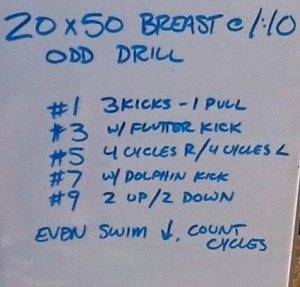 20 x 50 BREAST @ 1:10
ODD DRILL
#1 3 KICKS - 1 PULL
#3 w/ FLUTTER KICK
#5 4 CYCLES R/4 CYCLES L
#7 w/ DOLPHIN KICK
#9 2 UP/2 DOWN
EVEN SWIM ↓, COUNT
CYCLES